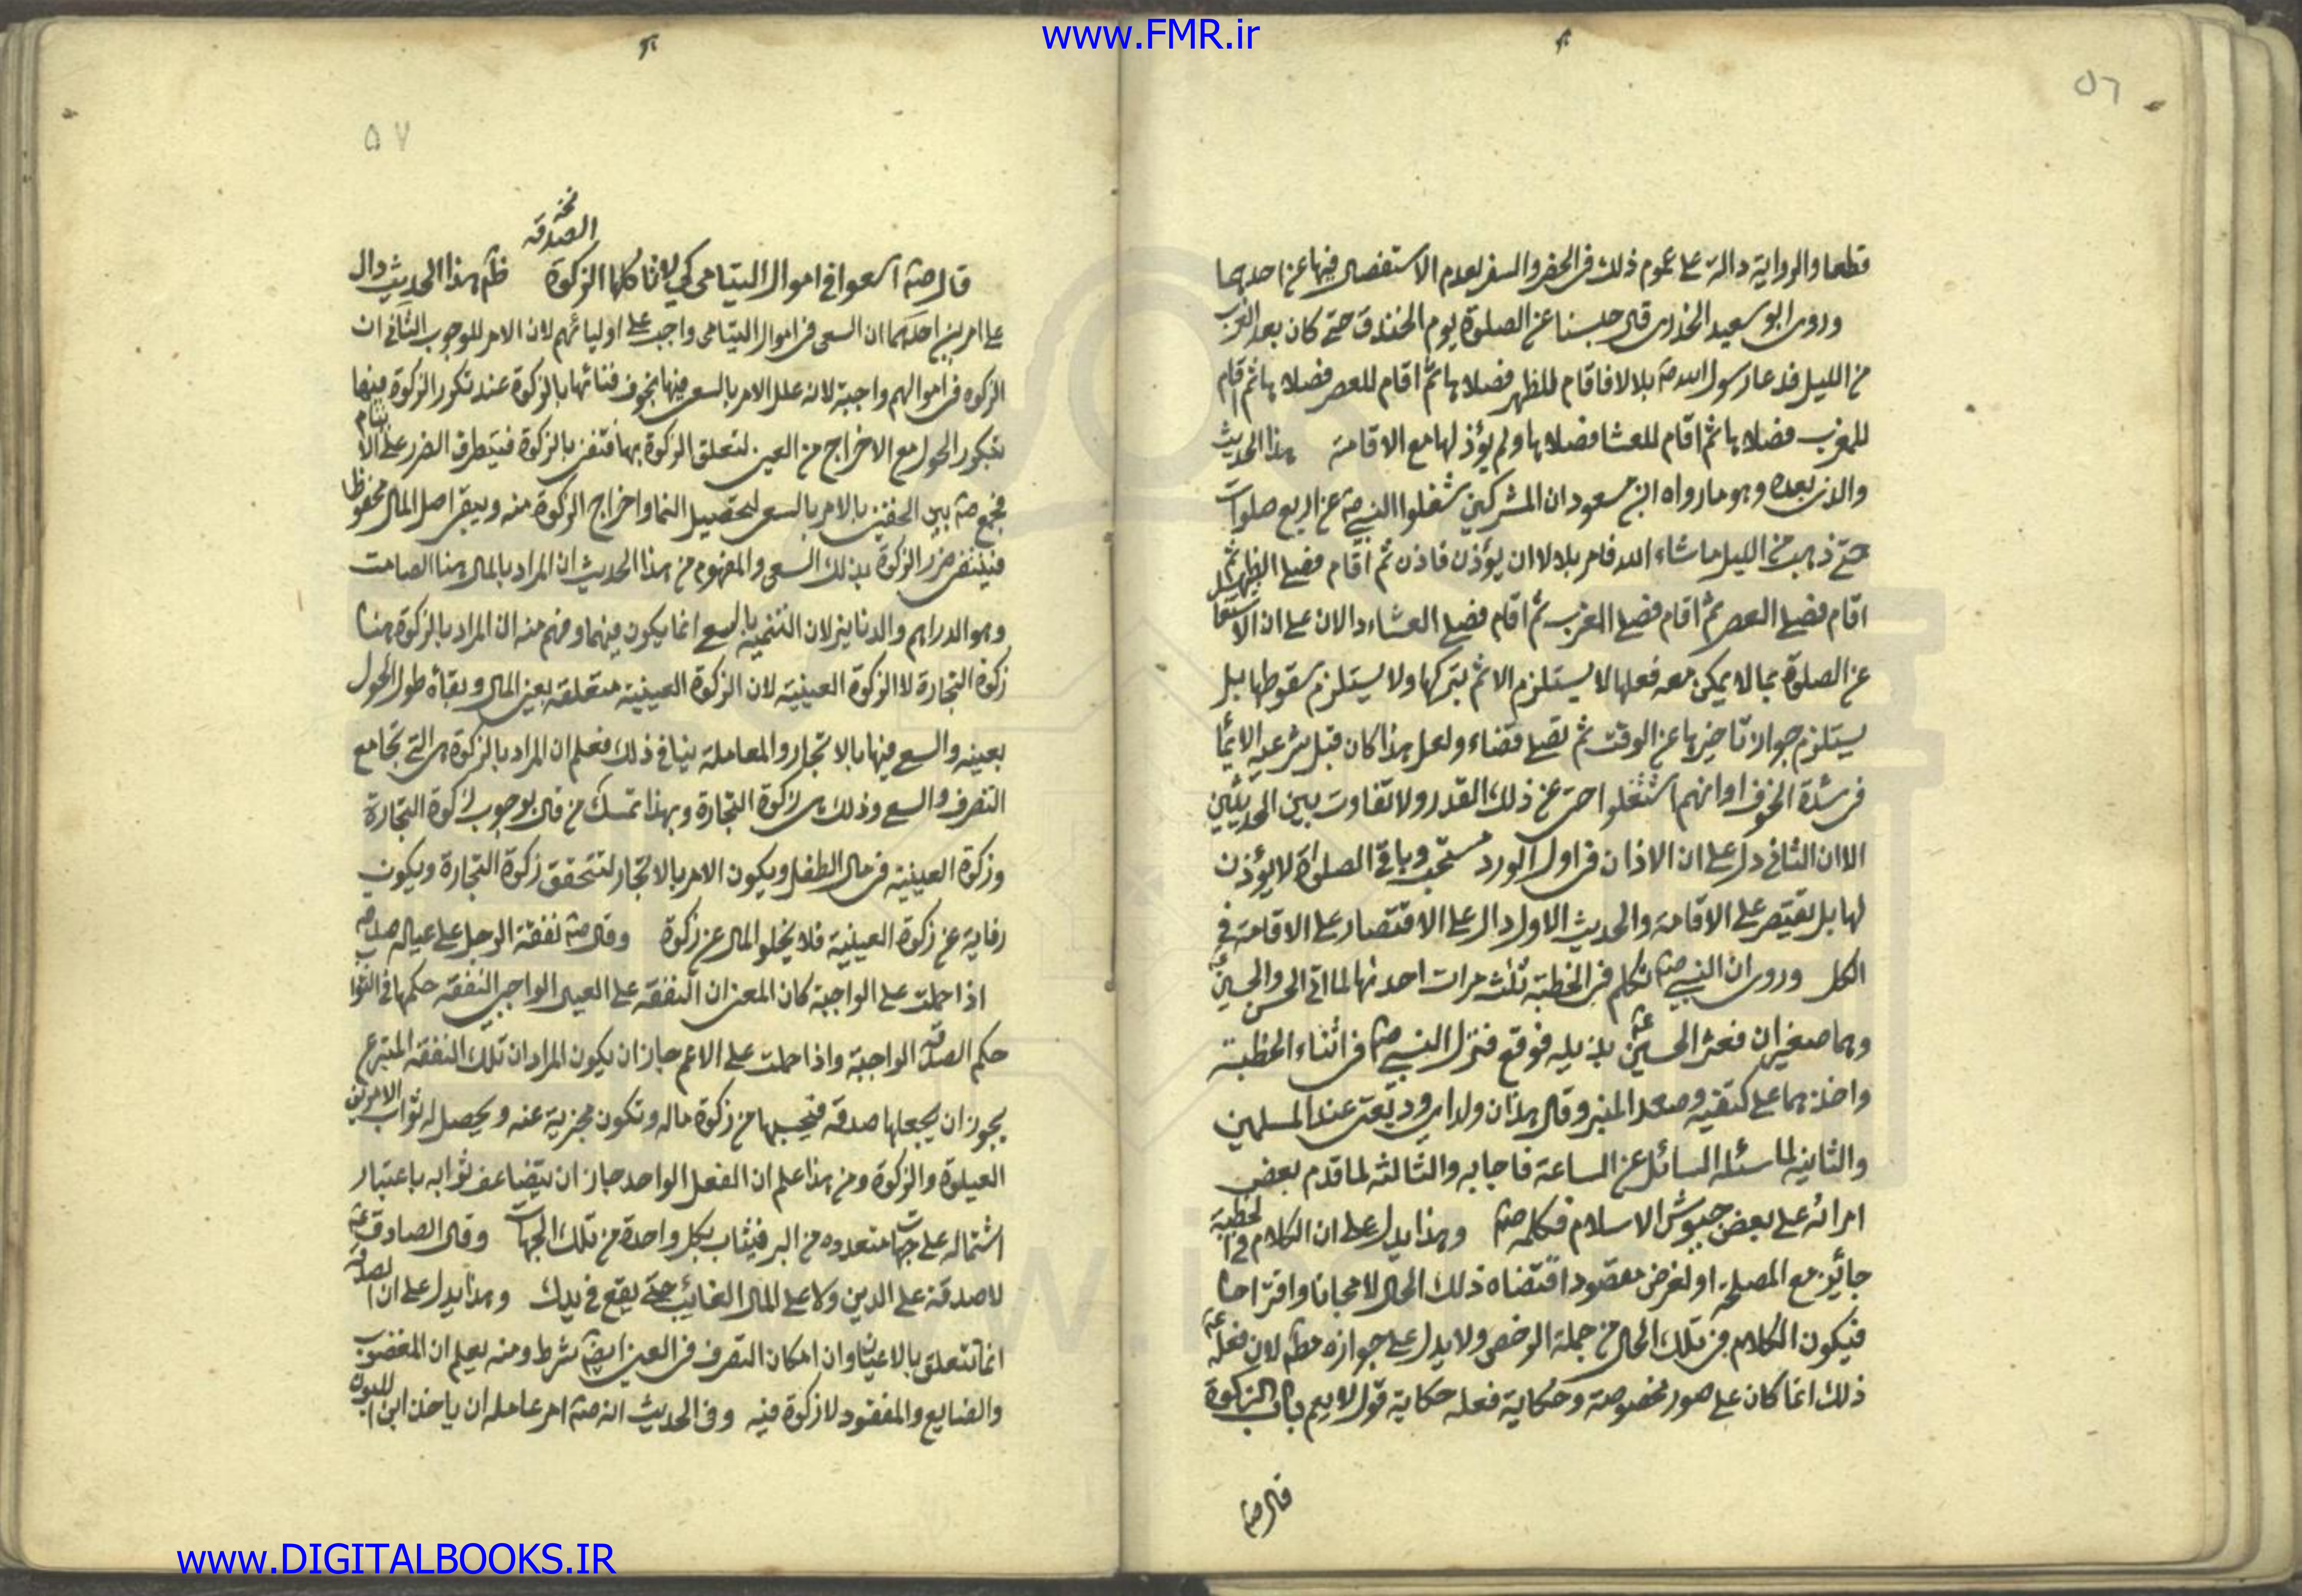 www.FMR.ir
٥٦
قطعا والرواية دالة على عموم ذلك فى الحضر والسفر لعدم الاستفصال فيها عن احدهما
وروى ابو سعيد الخدرى قال حبسنا عن الصلوة يوم الخندق حتى كان بعد المغرب
من الليل فدعا رسول الله صم بلالا فاقام للظهر فصلاها ثم اقام للعصر فصلاها ثم اقام
للمغرب فصلاها ثم اقام للعشا فصلاها ولم يؤذ لها مع الاقامة هذا الحديث
والذى بعده وهو ما رواه ابن مسعود ان المشركين شغلوا النبي صم عن اربع صلوات
حتى ذهب من الليل ما شاء الله فامر بلالا ان يؤذن فاذن ثم اقام فصلى الظهر ثم
اقام فصلى العصر ثم اقام فصلى المغرب ثم اقام فصلى العشاء دالان على ان الاشتغال
عن الصلوة بما لا يمكن معه فعلها لا يستلزم الاثم بتركها ولا يستلزم سقوطها بل
يستلزم جواز تاخيرها عن الوقت ثم تصلى قضاء ولعل هذا كان قبل شرعية الايما
فى شدة الخوف او انهم اشتغلوا حتى عن ذلك القدر ولا تفاوت بين الحديثين
الا ان الثانى دل على ان الاذان فى اول الورد مستحب وباقى الصلوة لا يؤذن
لها بل يقتصر على الاقامة والحديث الاول دال على الاقتصار على الاقامة فى
الكل وروى ان النبي صم تكلم فى الخطبة ثلث مرات احدها لما اتى الحسن والحسين
وهما صغيران فعثر الحسين بذيله فوقع فنزل النبي صم فى اثناء الخطبة
واخذهما على كتفيه وصعد المنبر وقال هذان ولداى وديعتى عند المسلمين
والثانية لما سئله السائل عن الساعة فاجابه والثالثة لما قدم بعض
امرائه على بعض جيوش الاسلام فكلمه صم وهذا يدل على ان الكلام فى الخطبة
جائز مع المصلحة او لغرض مقصود اقتضاه ذلك الحال لا مجانا واقتراحا
فيكون الكلام فى تلك الحال من جملة الرخص ولا يدل على جوازه مطم لان فعله
ذلك انما كان على صور مخصوصة وحكاية فعله حكاية قول لا يعم باب الزكوة
قال صم
٥٧
نخه
الصدقه
قال صم اسعوا فى اموال اليتامى كي لا تاكلها الزكوة هذا الحديث دال
على امرين احدهما ان السعى فى اموال اليتامى واجب على اوليائهم لان الامر للوجوب الثانى ان
الزكوه فى اموالهم واجبة لانه علل الامر بالسعى فيها بخوف فنائها بالزكوة عند تكرر الزكوة فيها
بتكرر الحول مع الاخراج من العين لتعلق الزكوة بها فتفنى بالزكوة فيتطرق الضرر على الايتام
فجمع صم بين الحقين بالامر بالسعى لتحصيل النما واخراج الزكوة منه ويبقى اصل المال محفوظا
فينتفى ضرر الزكوة بذلك السعى والمفهوم من هذا الحديث ان المراد بالمال هنا الصامت
وهو الدراهم والدنانير لان التنمية بالسعى انما يكون فيهما وفهم منه ان المراد بالزكوة هنا
زكوة التجارة لا الزكوة العينية لان الزكوة العينية متعلقة بعين المال وبقائه طول الحول
بعينه والسعى فيها بالاتجار والمعاملة ينافى ذلك فعلم ان المراد بالزكوة هى التى تجامع
التصرف والسعى وذلك هى زكوة التجارة وبهذا تمسك من قال بوجوب زكوة التجارة
وزكوة العينية فى مال الطفل ويكون الامر بالاتجار لتتحقق زكوة التجارة ويكون
رفاية عن زكوة العينية فلا يخلو المال عن زكوة وقال صم نفقة الرجل على عياله صدقة
اذا حملت على الواجبة كان المعنى ان النفقة على العيال الواجبى النفقة حكمها فى الثواب
حكم الصدقة الواجبة واذا حملت على الاعم جاز ان يكون المراد ان تلك النفقة المتبرع
يجوز ان يجعلها صدقة فيحسبها من زكوة ماله وتكون مجزية عنه ويحصل له ثواب الامرين
العيلوة والزكوة ومن هذا علم ان الفعل الواحد جاز ان يتضاعف ثوابه باعتبار
اشتماله على جهات متعدده من البر فيثاب بكل واحدة من تلك الجهات وقال الصادق ع
لا صدقة على الدين ولا على المال الغائب حتى يقع فى يدك وهذا يدل على ان الصدقة
انما تتعلق بالاعيان وان امكان التصرف فى العين ايضا شرط ومنه يعلم ان المغصوب
والضايع والمفقود لا زكوة فيه وفى الحديث انه صم امر عامله ان ياخذ ابن اللبون
www.DIGITALBOOKS.IR